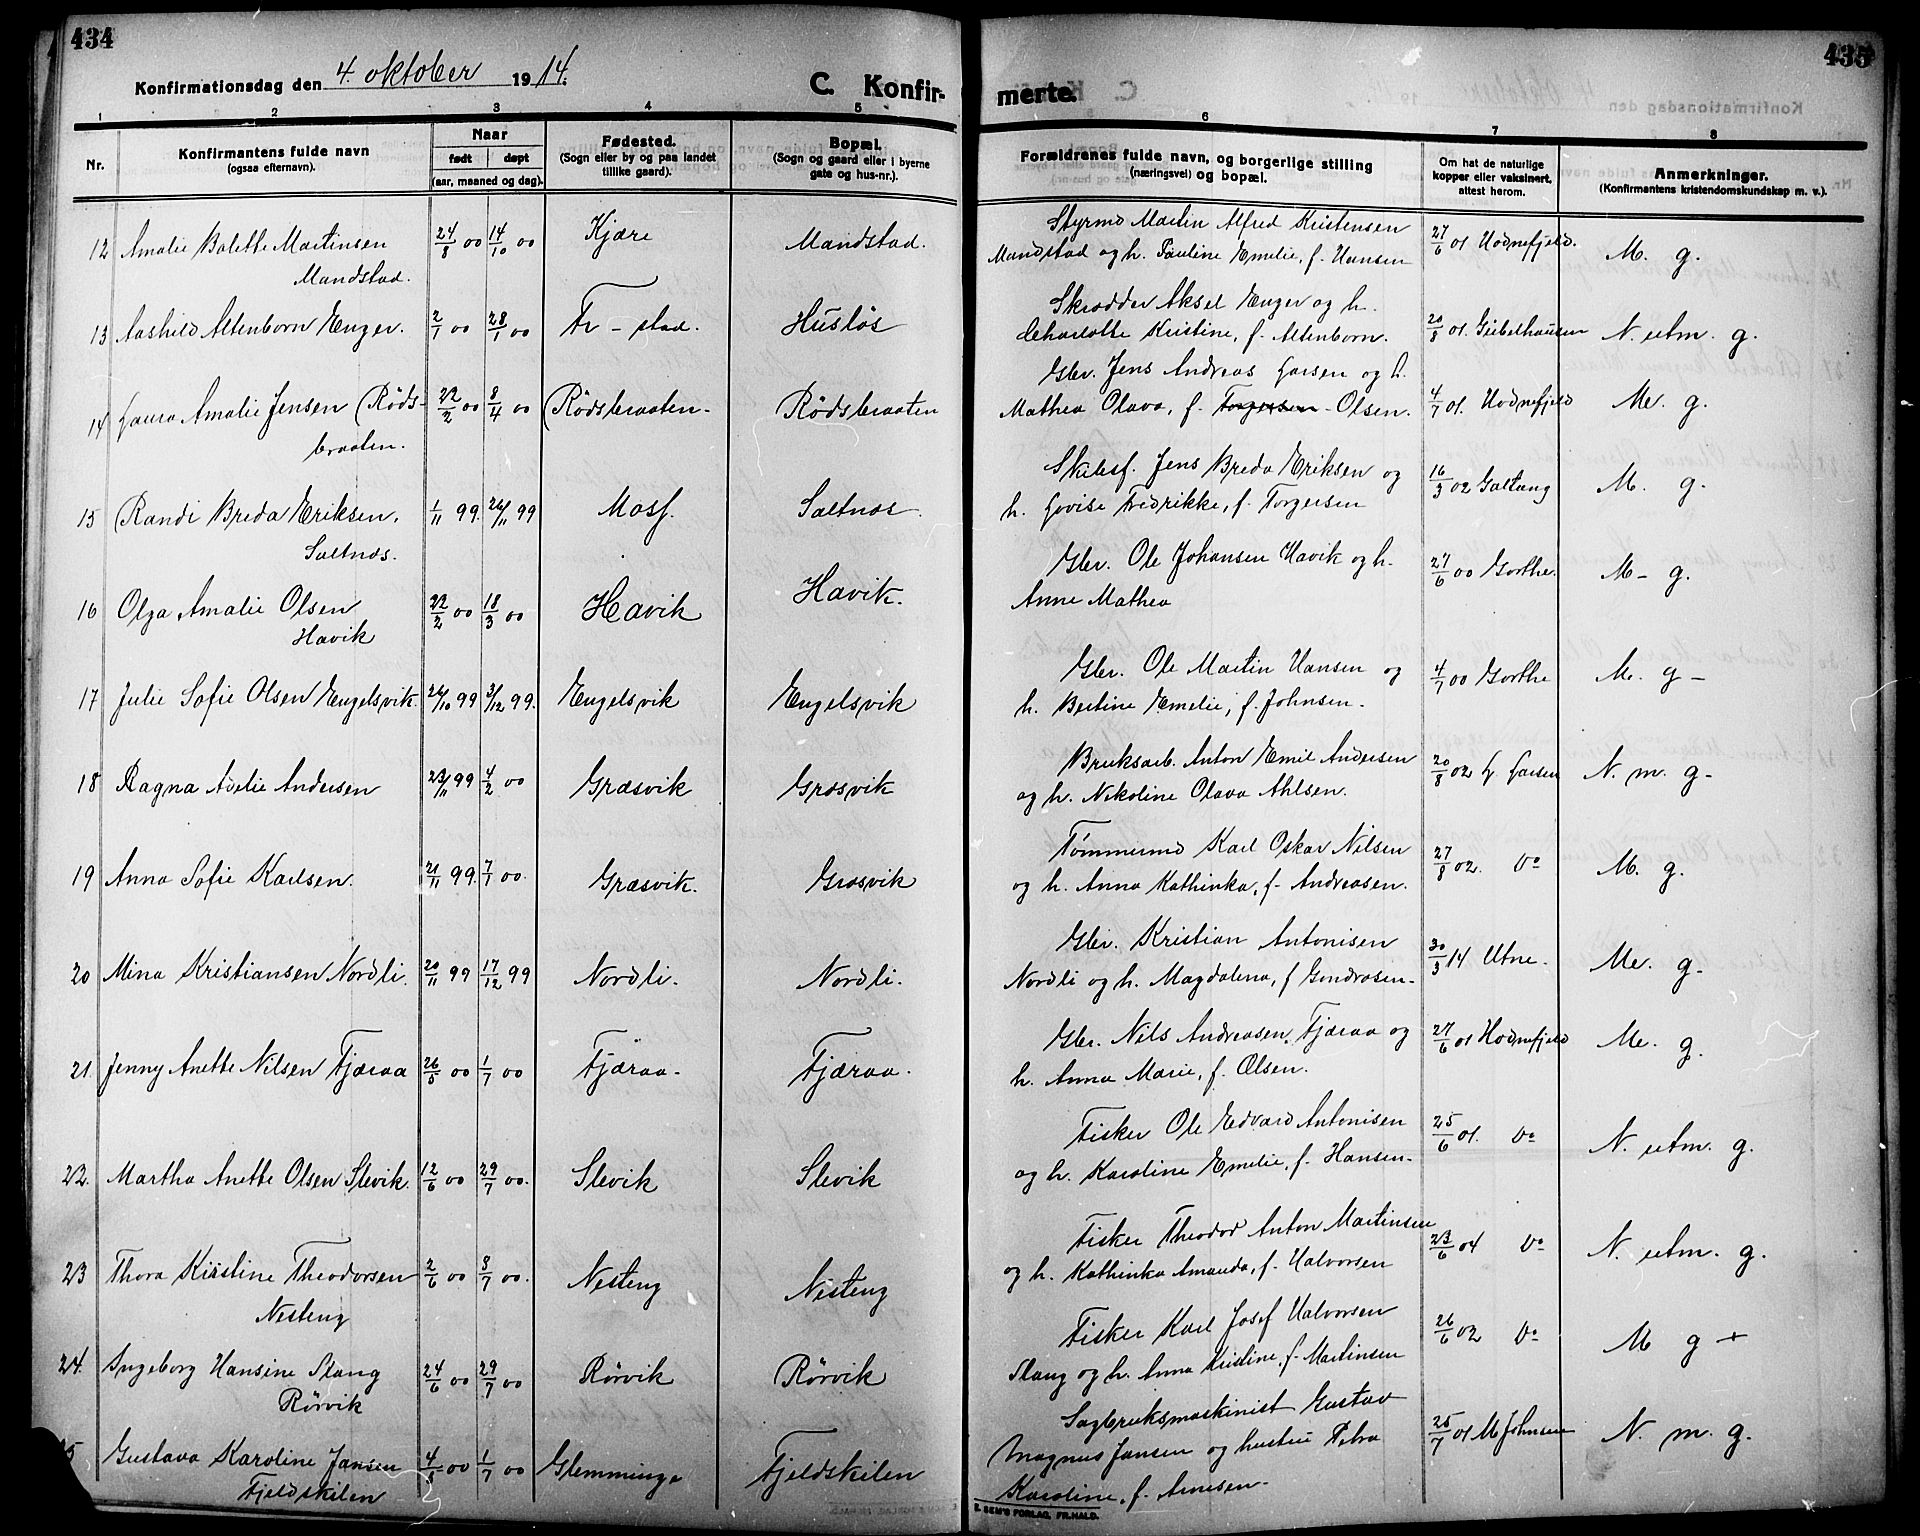 434
Konfirmationsdag den 4. oktober 1914.
C. Konfir-
1 2 3 4 5
Nr.
Konfirmantens fulde navn
(ogsaa efternavn).
Naar
født døpt
(aar, maaned og dag).
Fødested.
(Sogn eller by og paa landet
tillike gaard).
Bopæl.
(Sogn og gaard eller i byerne
gate og hus-nr.).
12 Amalie Balette Martinsen 24/8 00 14/10 00 Kjære Mandstad.
Mandstad.
13 Aashild Altenborn Enger. 2/1 00 28/1 00 Fr-stad. Husløs
14 Laura Amalie Jensen Røds- 22/2 00 8/4 00 Rødsbraaten- Rødsbraaten
braaten.
15 Randi Breda Eriksen. 1/11 99. 26/11 99 Moss. Saltnæs.
Saltnæs.
16 Olga Amalie Olsen 22/2 00 18/3 00 Havik Havik.
Havik
17 Julie Sofie Olsen Engelsvik. 26/10 99 3/12 99. Engelsvik Engelsvik
18 Ragna Andersen 23/11 99 4/2 00 Græsvik Græsvik
19 Anna Sofie Karlsen. 21/11 99. 7/1 00. Græsvik. Græsvik
20 Mina Kristiansen Nordli. 20/11 99 17/12 99 Nordli. Nordli.
21. Jenny Anette Nilsen Fjæraa 26/5 00 1/7 00 Fjæraa- Fjæraa.
22. Martha Anette Olsen Slevik. 12/6 00 29/7 00. Slevik Slevik
23 Thora Kristine Theodorsen 2/6 00 8/7 00. Nesteng Nesteng
Nesteng
24. Ingeborg Hansine Stang 24/6 00 29/7 00 Rørvik Rørvik
Rørvik
5 Gustava Karoline Jansen 4/5 00 1/7 00 Glemminge Fjeldskilen
Fjeldskilen
435
merte.
6 7 8
Forældrenes fulde navn, og borgerlige stilling
(næringsvei) og bopæl.
Om hat de naturlige
kopper eller vaksinert,
attest herom.
Anmerkninger.
(Konfirmantens kristendomskundskap m. v.).
Styrmd Martin Alfred Kristensen
Mandstad og h. Pauline Emelie, f. Hansen 27/6 01 Hodnefjeld. M. g.
Skrædder Aksel Enger og h.
Charlotte Kristine, f. Altenborn. 20/8 01. Giebelhausen N. utm. g.
Gbr. Jens Andreas Larsen og h.
Mathea Olava, f. Torgersen - Olsen. 4/7 01. Hodnefjeld Me. g.
Skibsf. Jens Breda Eriksen og
h. Lovise Fredrikke, f. Torgersen 16/3 02 Galtung M. g.
Gbr. Ole Johansen Havik og h.
Anne Mathea 27/6 00 Gorthe. M- g.
Gbr. Ole Martin Hansen og
h. Bertine Emelie, f. Johnsen. 4/7 00 Gorthe M. g-
Bruksarb. Anton Emil Andersen
og h. Nikoline Olava Ahlsen. 20/8 02 L. Larsen N. m. g-
Tømmermd Karl Oskar Nilsen
og h. Anna Kathinka, f. Andreasen. 27/8 02. Do M. g.
Gbr. Kristian Antonisen
Nordli og h. Magdalena, f Gundrosen- 30/3 14 Utne. Me. g.
Gbr. Nils Andreasen Fjæraa og
h. Anna Marie, f. Olsen. 27/6 01 Hodnefjeld Me. g.
Fisker Ole Edvard Antonisen
og h. Karoline Emelie, f. Hansen. 25/6 01. Do N. utm. g.
Fisker Theodor Anton Martinsen
og h. Kathinka Amanda, f. Halvorsen 23/6 04 Do N. utm. g.
Fisker Karl Josef Halvorsen
Stang og h. Anna Kristine, f. Martinsen 26/6 02 Do M g +
Sagbruksmaskinist Gustav
Magnus Jansen og hustru Petra 25/7 01 M Johnsen N. m. g.
Karoline, f. Arnesen.
E. SEM'S FORLAG, FR.HALD.